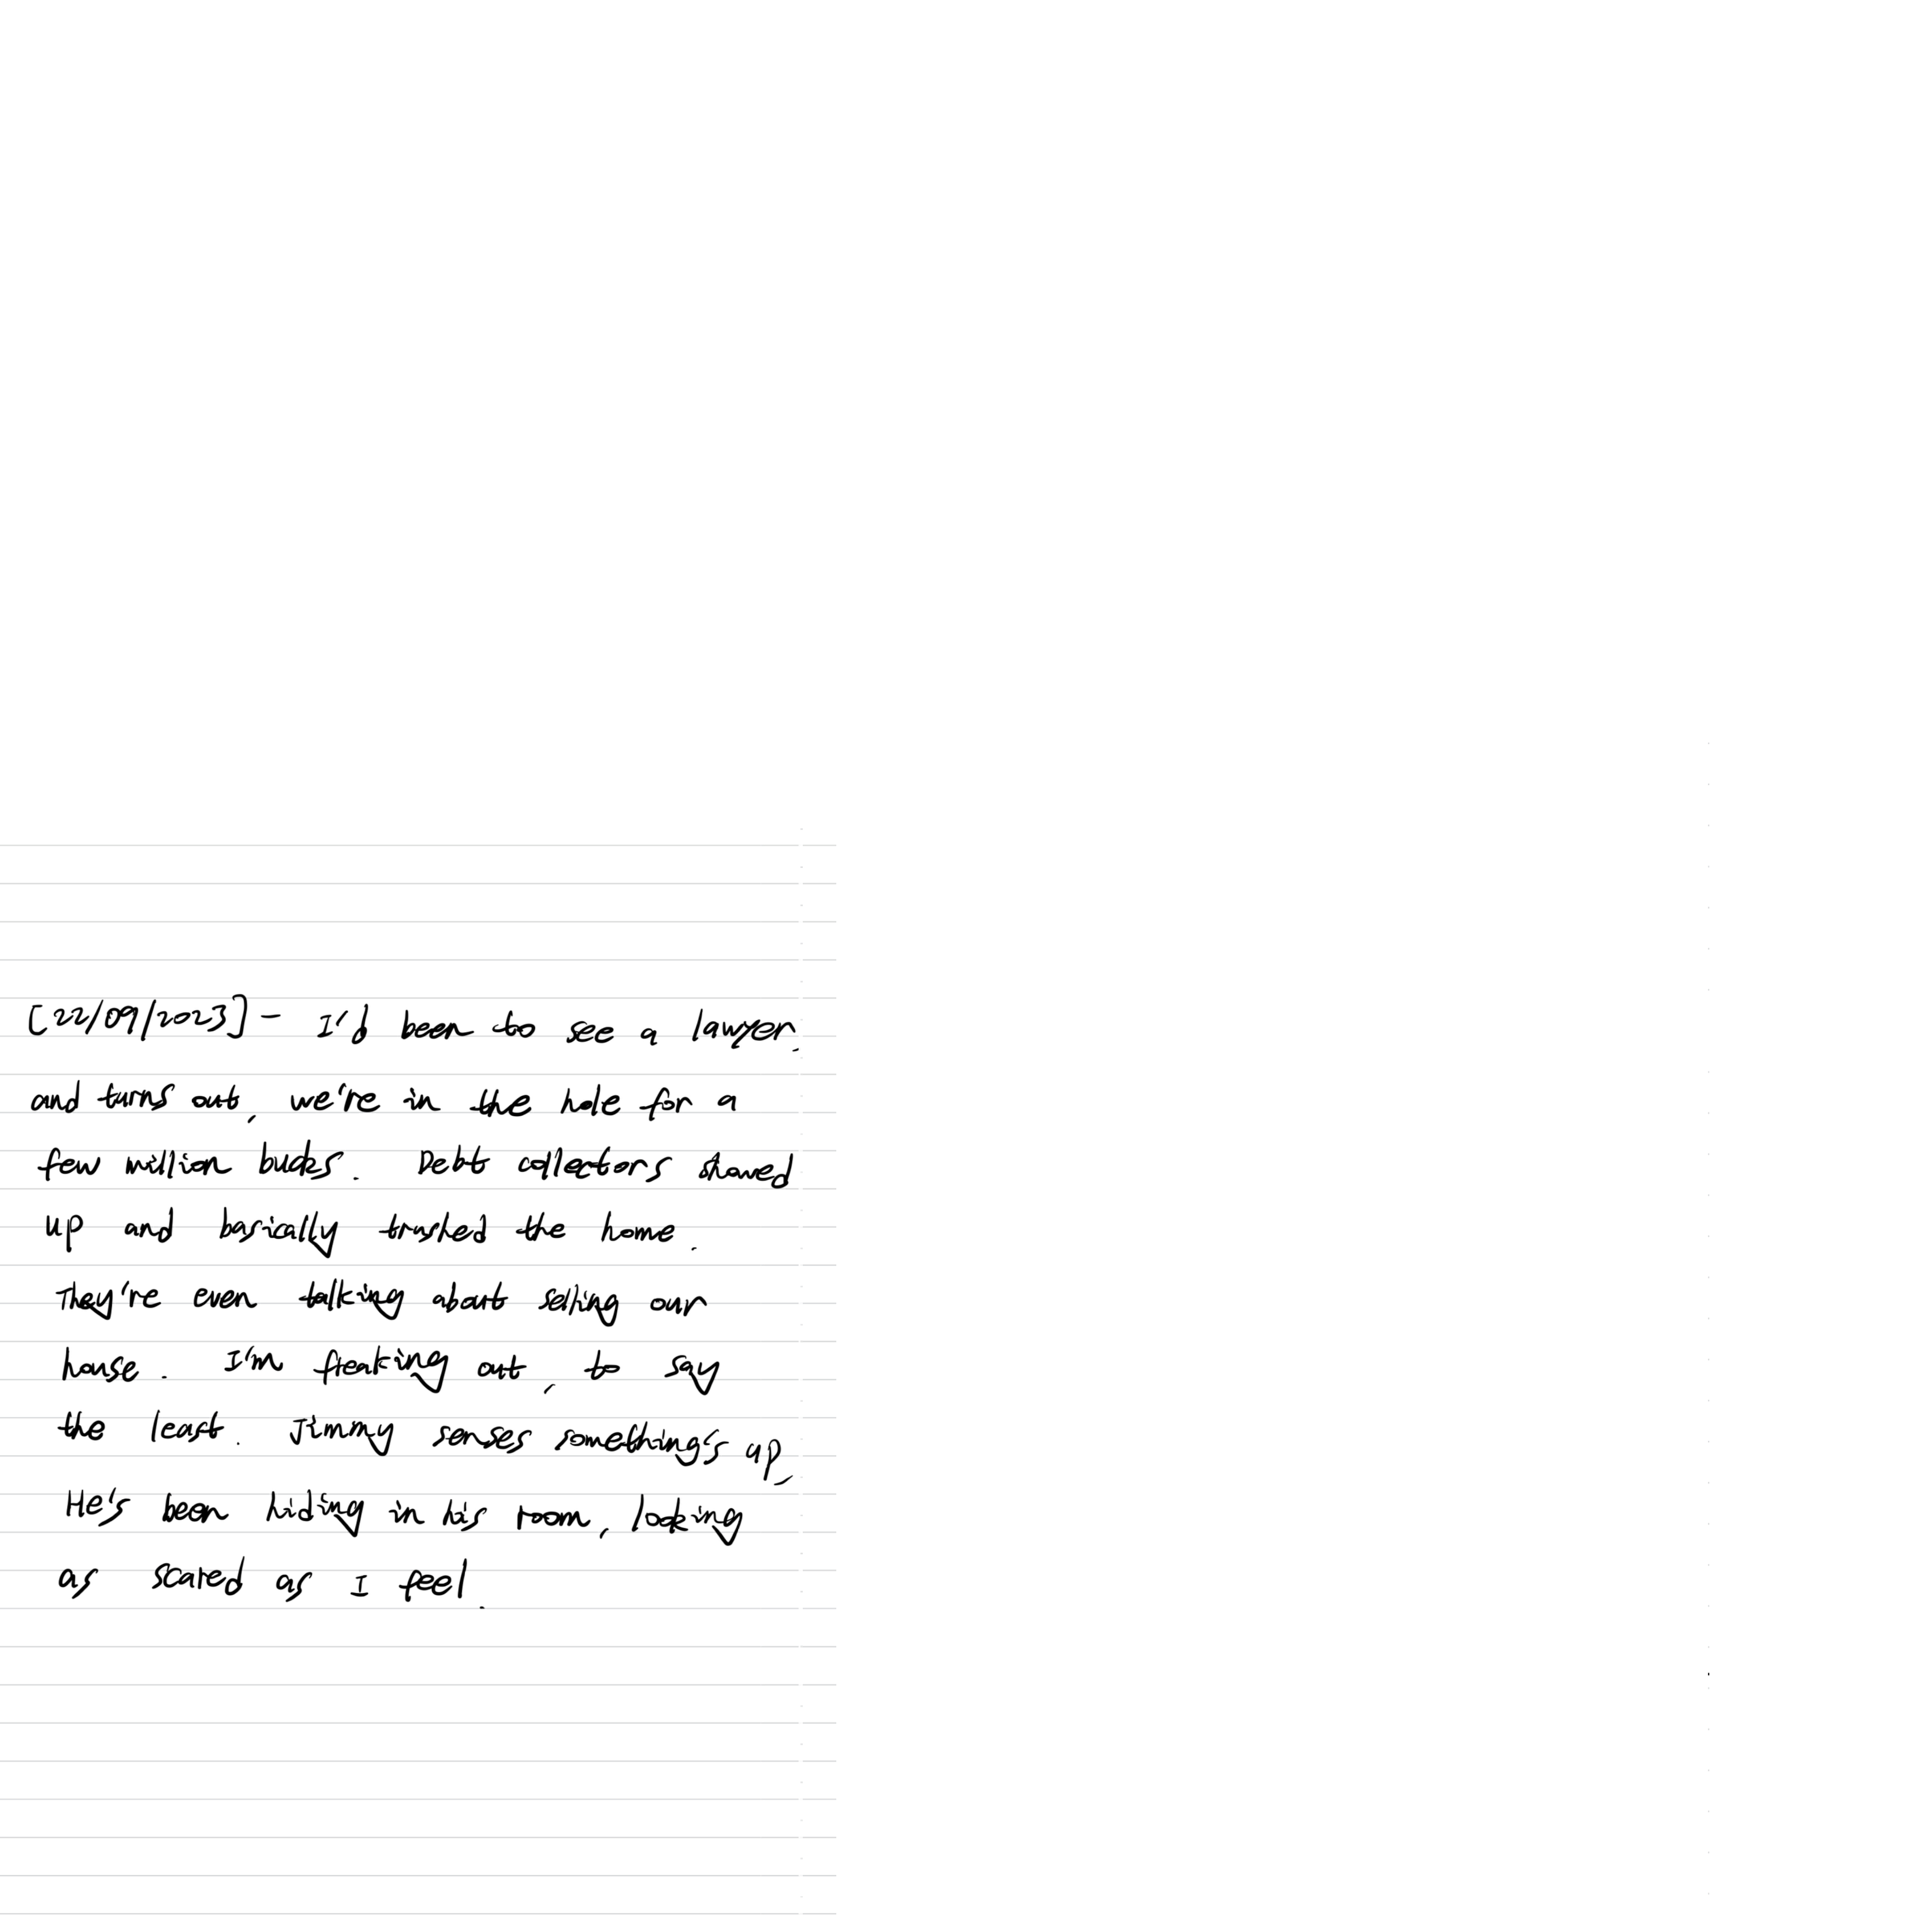 [22/09/2023] - I'd been to see a lawyer.
and turns out, we're in the hole for a
few million bucks. Debt collectors showed
up and basically trashed the home.
They're even talking about selling our
house. I'm freaking out, to say
the least. Jimmy senses something's up,
He's been hiding in his room, looking
as scared as I feel.